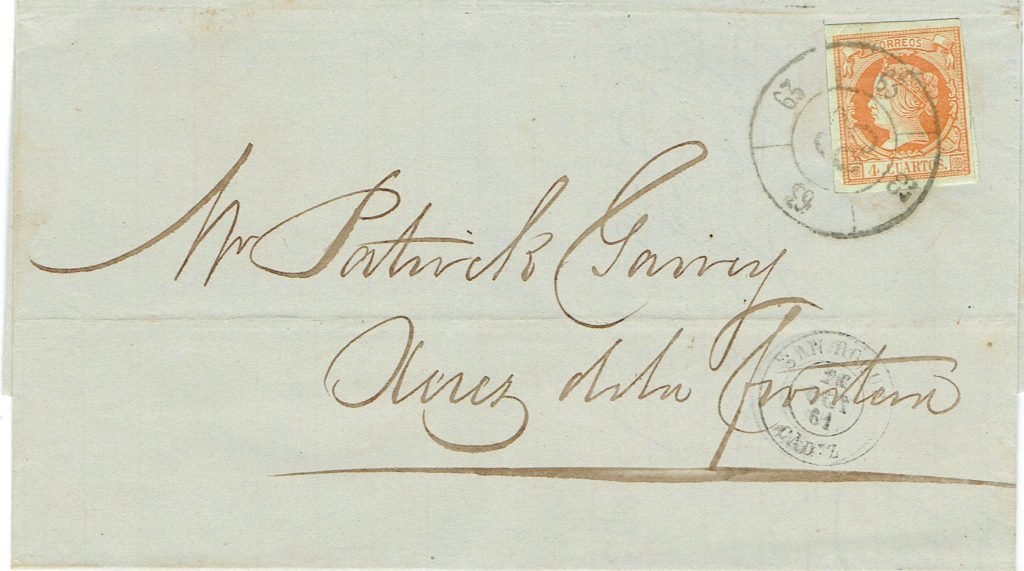 CORREOS
4 CUARTOS.
63
63
63
63
Mr Patrick Garvey
Xerez dela frontera
SAN ROQUE
OCT
61
CADIZ